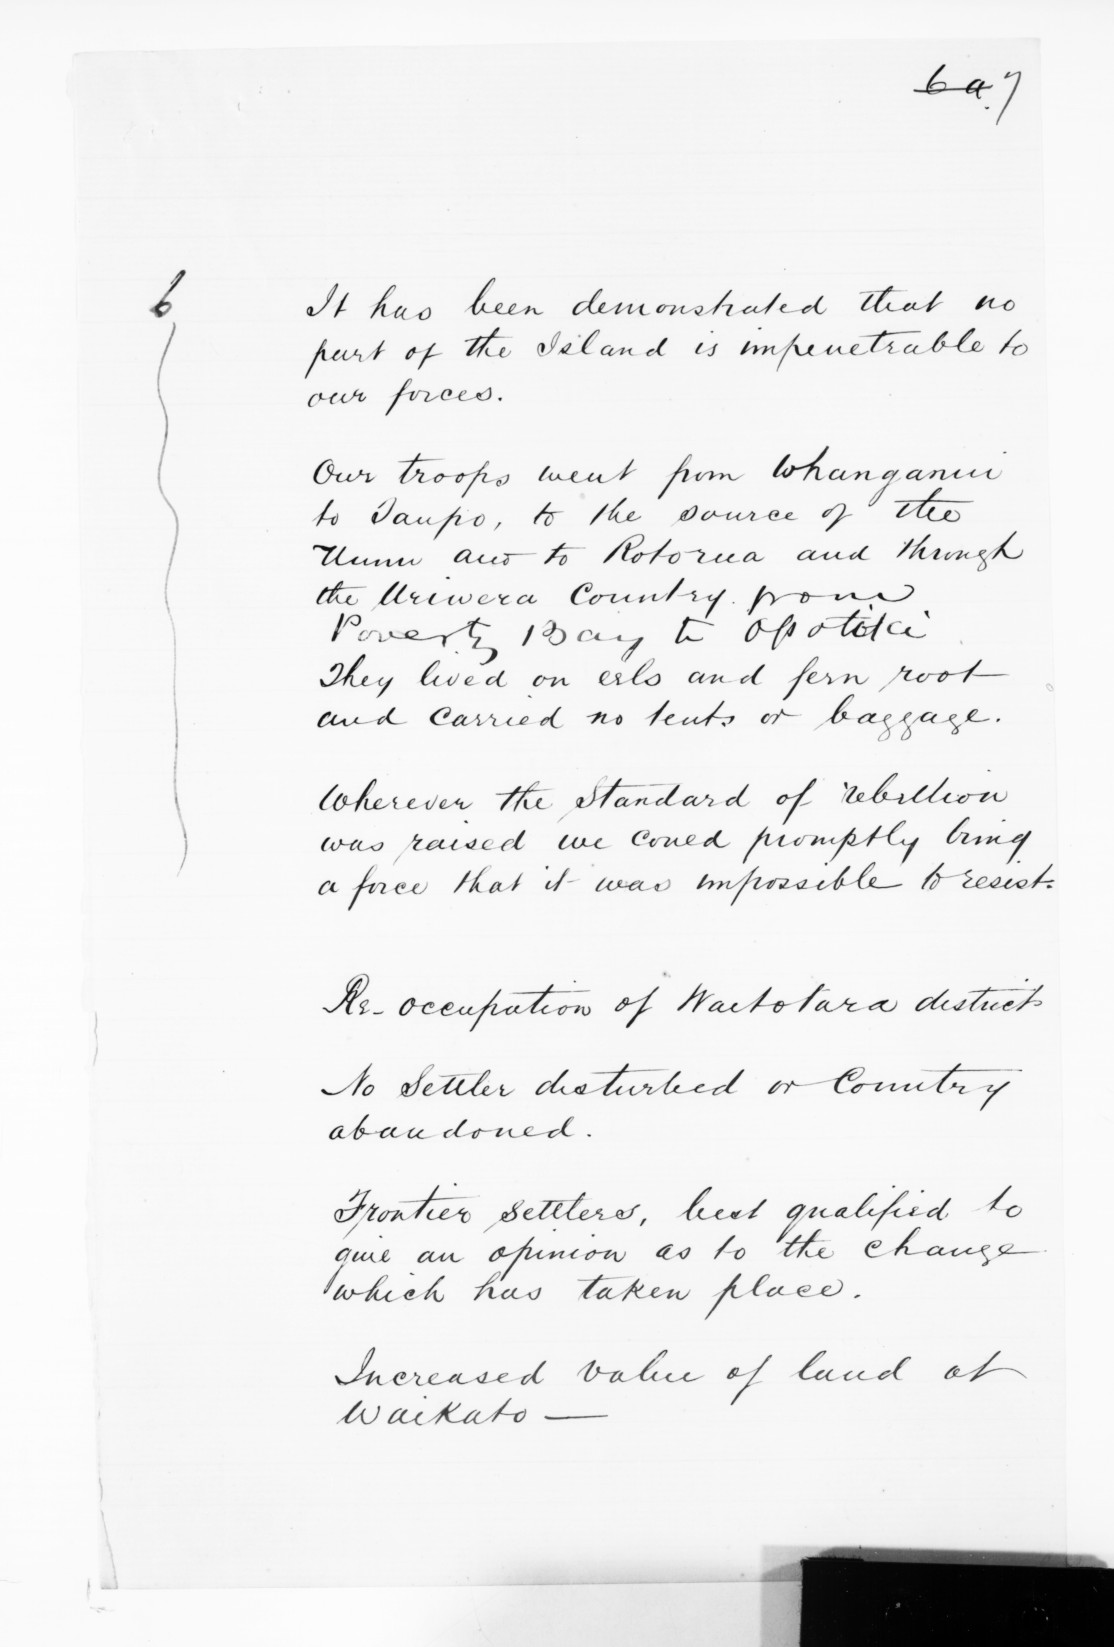 6 a. 7
6
It has been demonstrated that no
part of the Island is impenetrable to
our forces.
Our troops went from Whanganui
to Taupo, to the source of the
and to Rotorua and through
the Uriwera Country. from
Poverty Bay to Opotiki
They lived on eels and fern root
and carried no tents or baggage.
Wherever the Standard of rebellion
was raised we coued promptly bring
a force that it was impossible to resist.
Re-occupation of Waitotara district
No Settler disturbed or Country
abandoned.
Frontier Settlers, best qualified to
give an opinion as to the change
which has taken place.
Increased value of land at
Waikato —